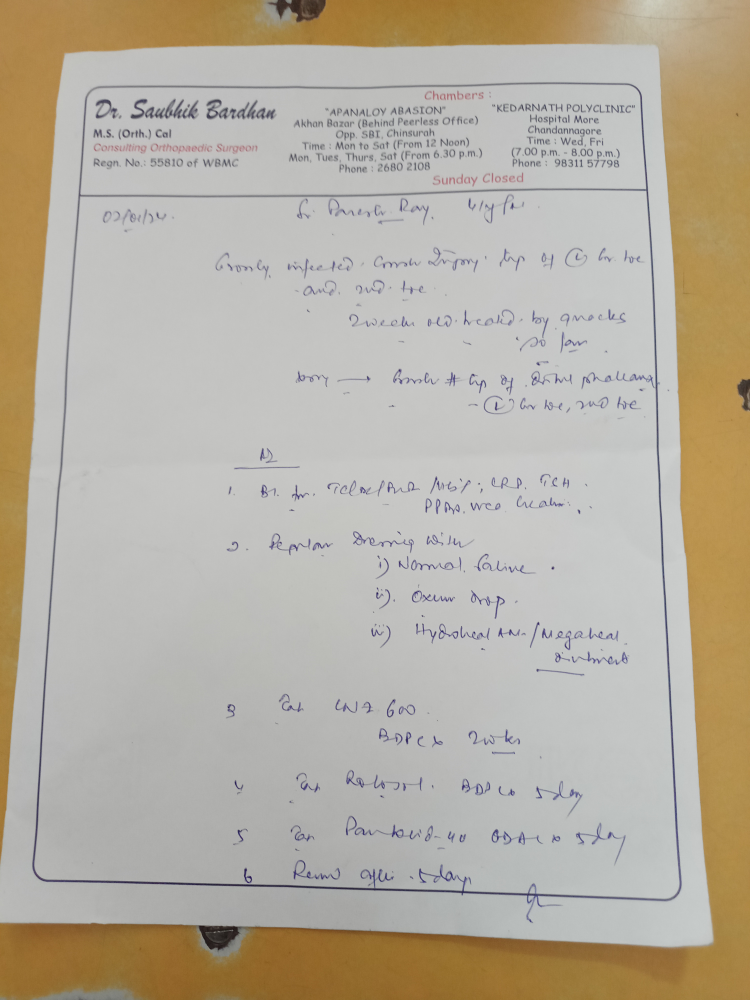 Chambers :
Dr. Saubhik Bardhan
M.S. (Orth.) Cal
Consulting Orthopaedic Surgeon
Regn. No.: 55810 of WBMC
"APANALOY ABASION"
Akhan Bazar (Behind Peerless Office)
Opp. SBI, Chinsurah
Time : Mon to Sat (From 12 Noon)
Mon, Tues, Thurs, Sat (From 6.30 p.m.)
Phone : 2680 2108
"KEDARNATH POLYCLINIC"
Hospital More
Chandannagore
Time : Wed, Fri
(7.00 p.m. - 8.00 p.m.)
Phone : 98311 57798
Sunday Closed
Ray
infected Crush Injury tip of (L) Gr. toe
and 2nd toe
2 weeks old treated by quacks
so far
Crush # tip of
(L) Gr toe, 2nd toe
1.
CRP
2. Regular Dressing with
i) Normal Saline
ii) drop
iii) Hydroheal AM / Megaheal
ointment
3 Tab LNZ 600
BDPC x 2 wks
4 Tab BDPC x 5 day
5 Tab 40 ODAC x 5 day
6 after 5 days